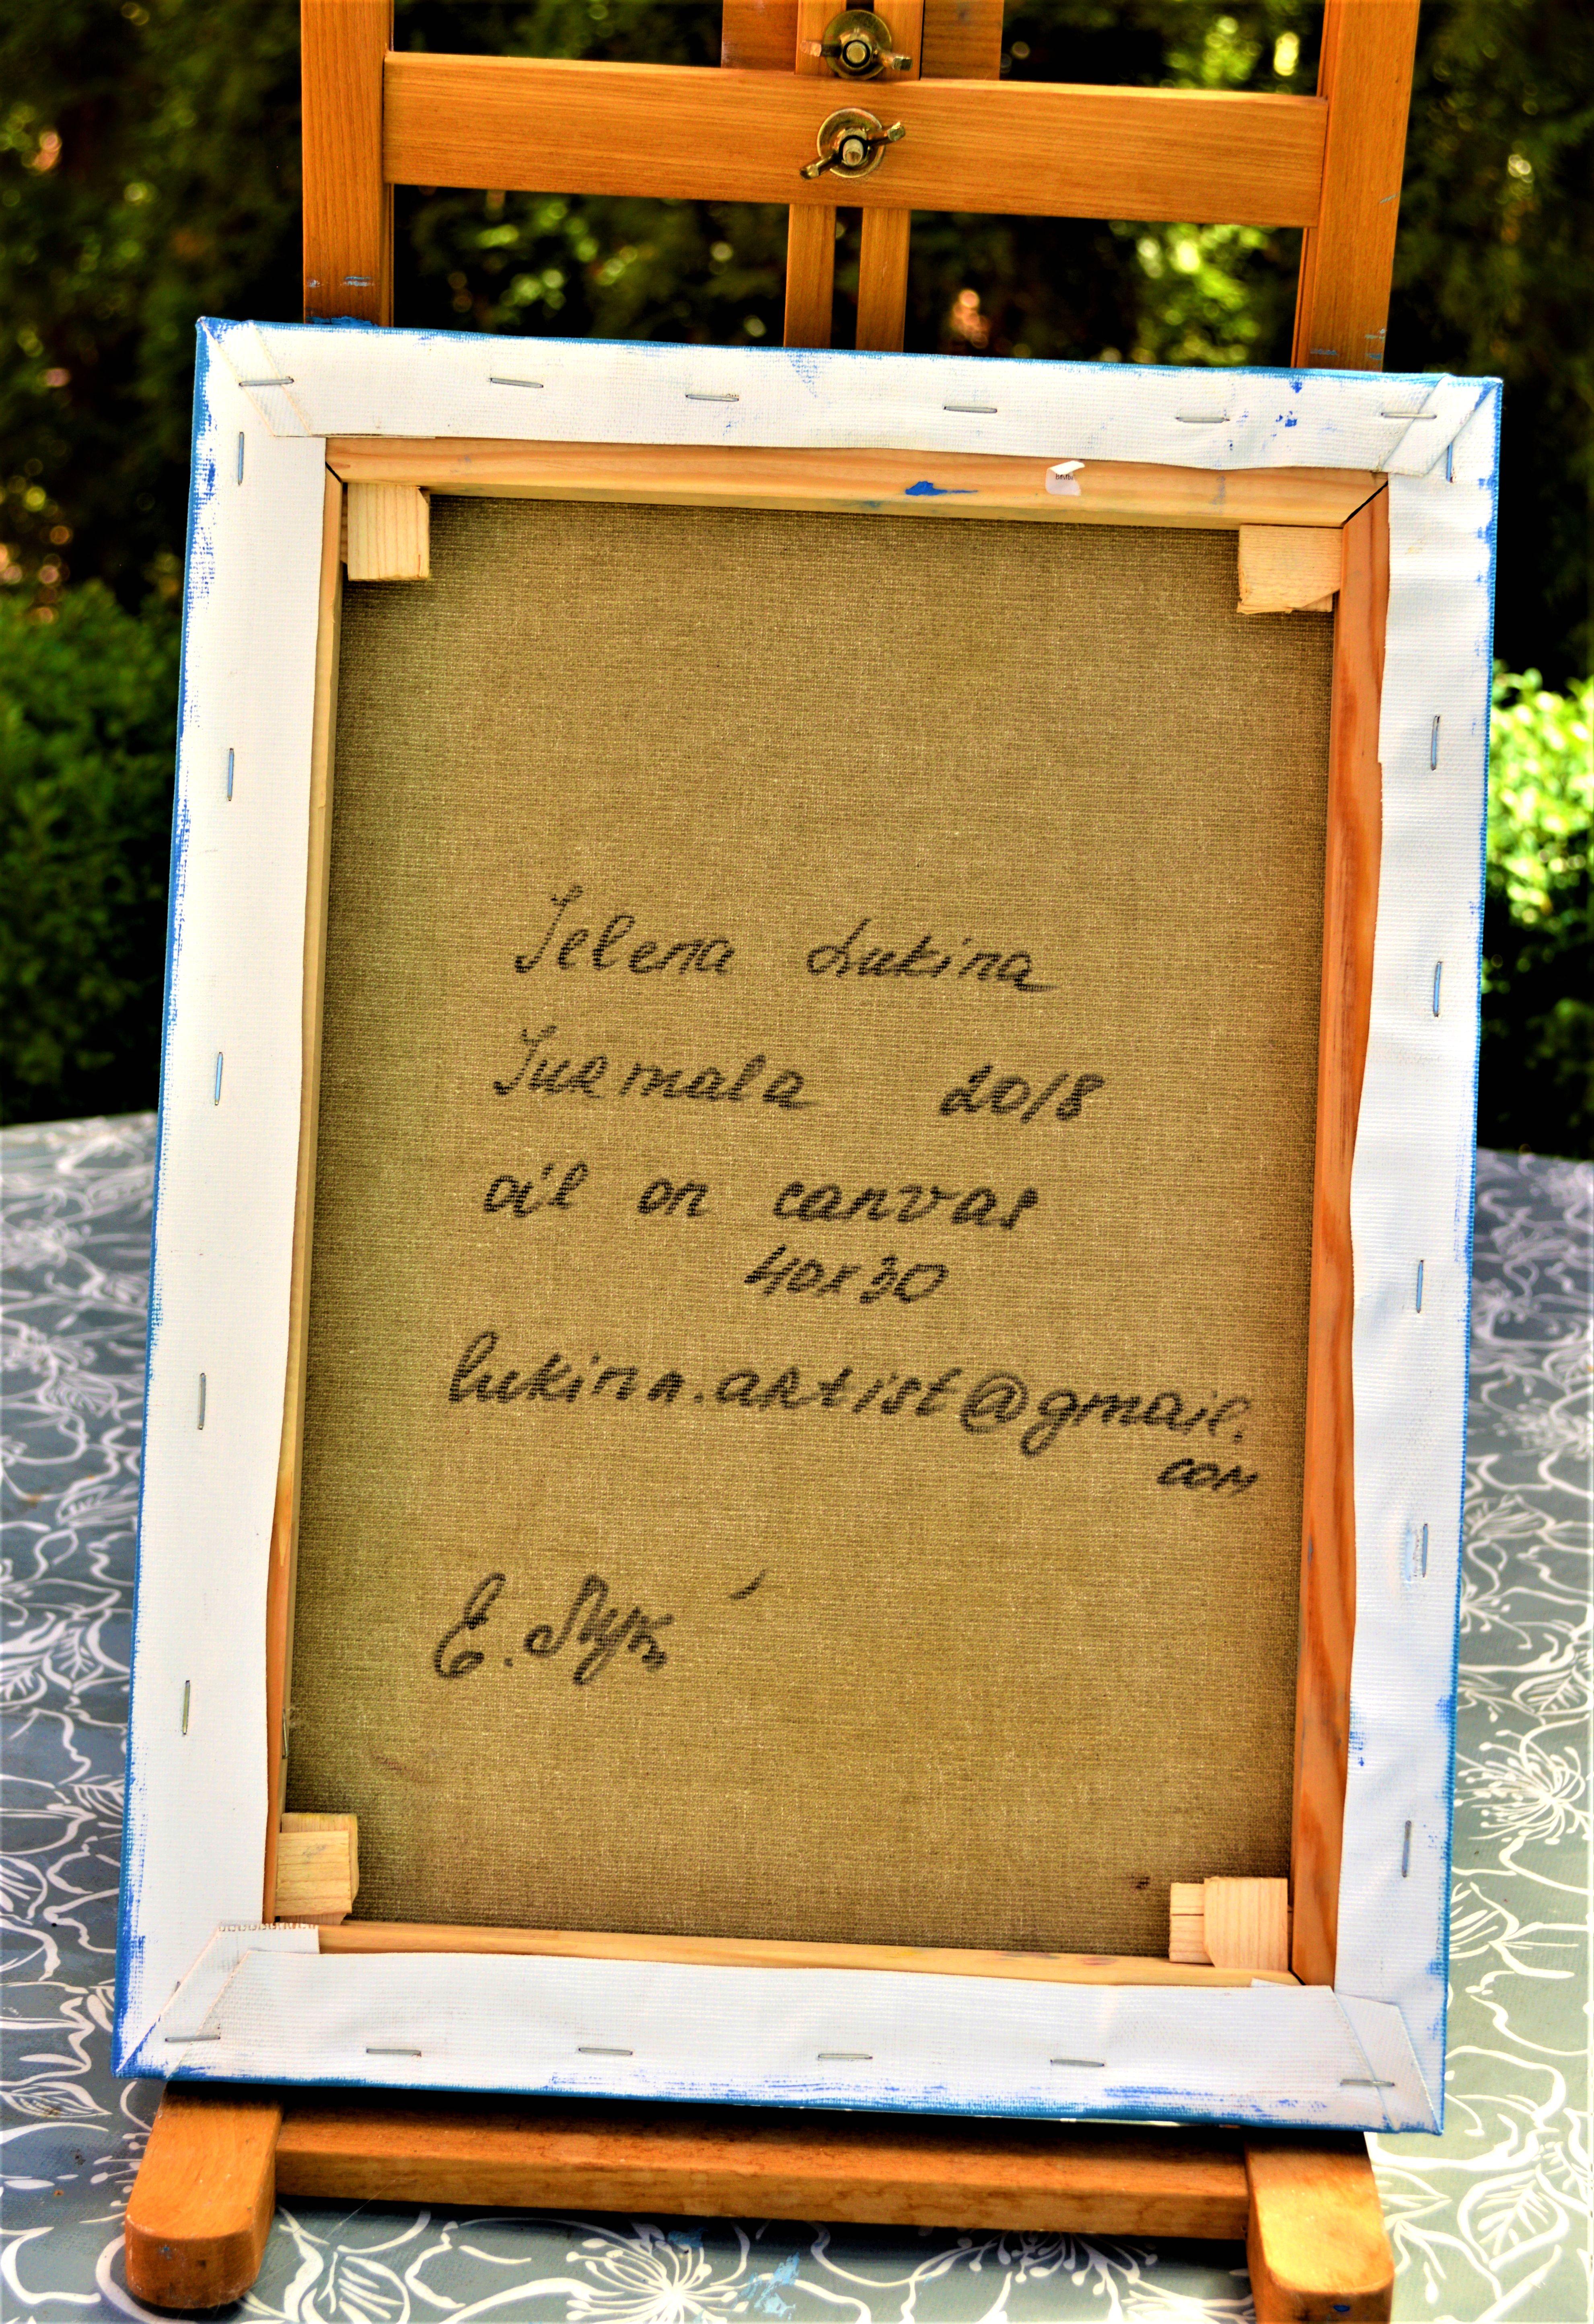 Jelena Lukina
Jurmala 2018
oil on canvas
40x30
lukina.artist@gmail.
com
Е. Лук